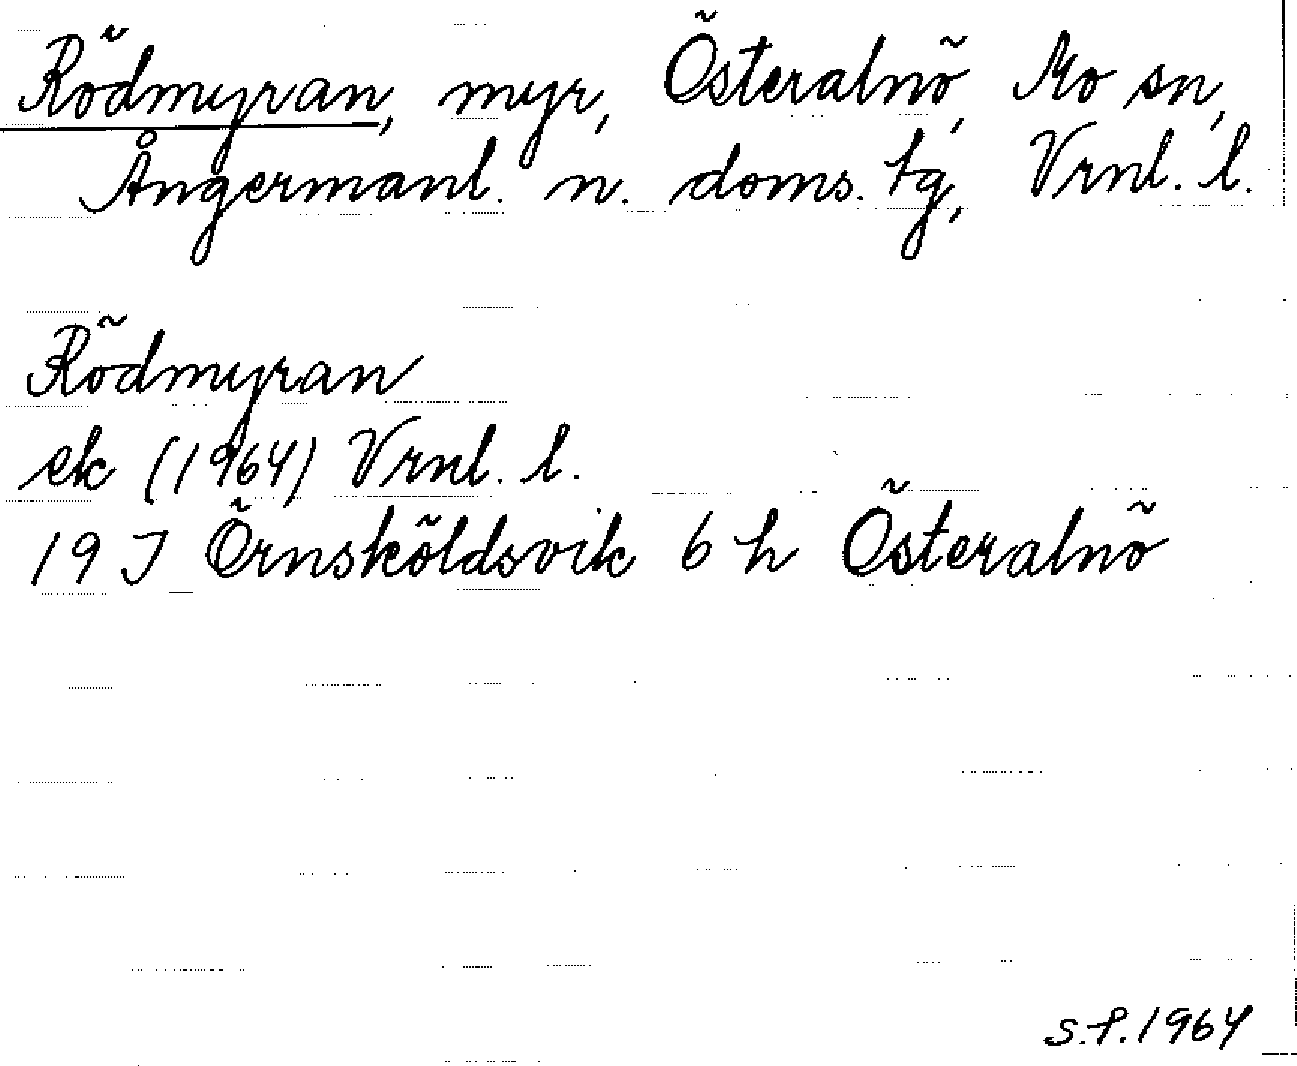 Rödmyran, myr, Österalnö, Mo sn,
Ångermanl. n. doms. tg, Vrnl. l.
Rödmyran
ek (1964) Vrnl. l.
19 J Örnsköldsvik 6 h Österalnö
S.P. 1964